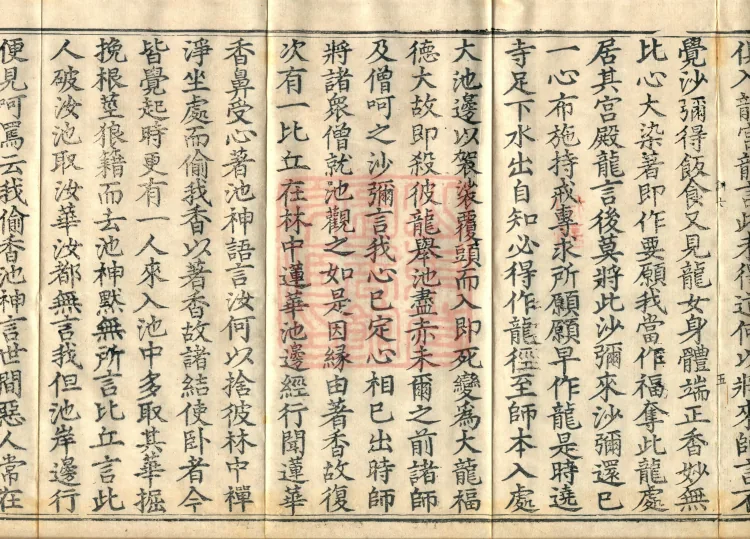 入龍宮龍言此未得道何以將來師言不
覺沙彌得飯食又見龍女身體端正香妙無
比心大染著即作要願我當作福奪此龍處
居其宮殿龍言後莫將此沙彌來沙彌還已
一心布施持戒專求所願願早作龍是時遶
寺足下水出自知必得作龍徑至師本入處
大池邊以袈裟覆頭而入即死變為大龍福
德大故即殺彼龍舉池盡赤未爾之前諸師
及僧呵之沙彌言我心已定心相已出時師
將諸眾僧就池觀之如是因緣由著香故復
次有一比丘在林中蓮華池邊經行聞蓮華
香鼻受心著池神語言汝何以捨彼林中禪
淨坐處而偷我香以著香故諸結使臥者今
皆覺起時更有一人來入池中多取其華掘
挽根莖狼藉而去池神默無所言比丘言此
人破汝池取汝華汝都無言我但池岸邊行
便見呵罵云我偷香池神言世間惡人常在